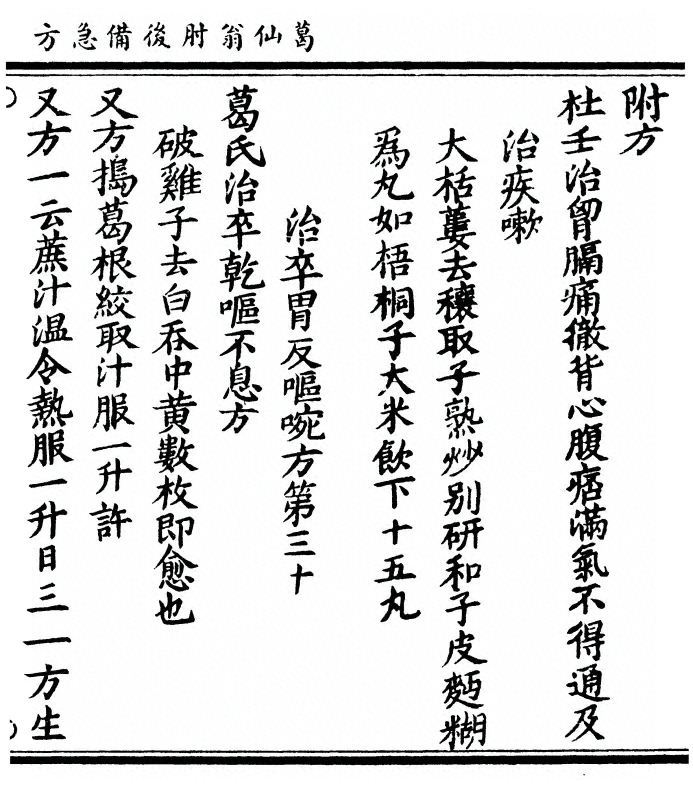 葛仙翁肘後備急方
附方
杜壬治胷膈痛徹背心腹痞滿氣不得通及
治痰嗽
大栝蔞去穰取子熟炒别研和子皮麪糊
爲丸如梧桐子大米飲下十五丸
治卒胃反嘔啘方第三十
葛氏治卒乾嘔不息方
破雞子去白吞中黄數枚即愈也
又方搗葛根絞取汁服一升許
又方一云蔗汁温令熱服一升日三一方生